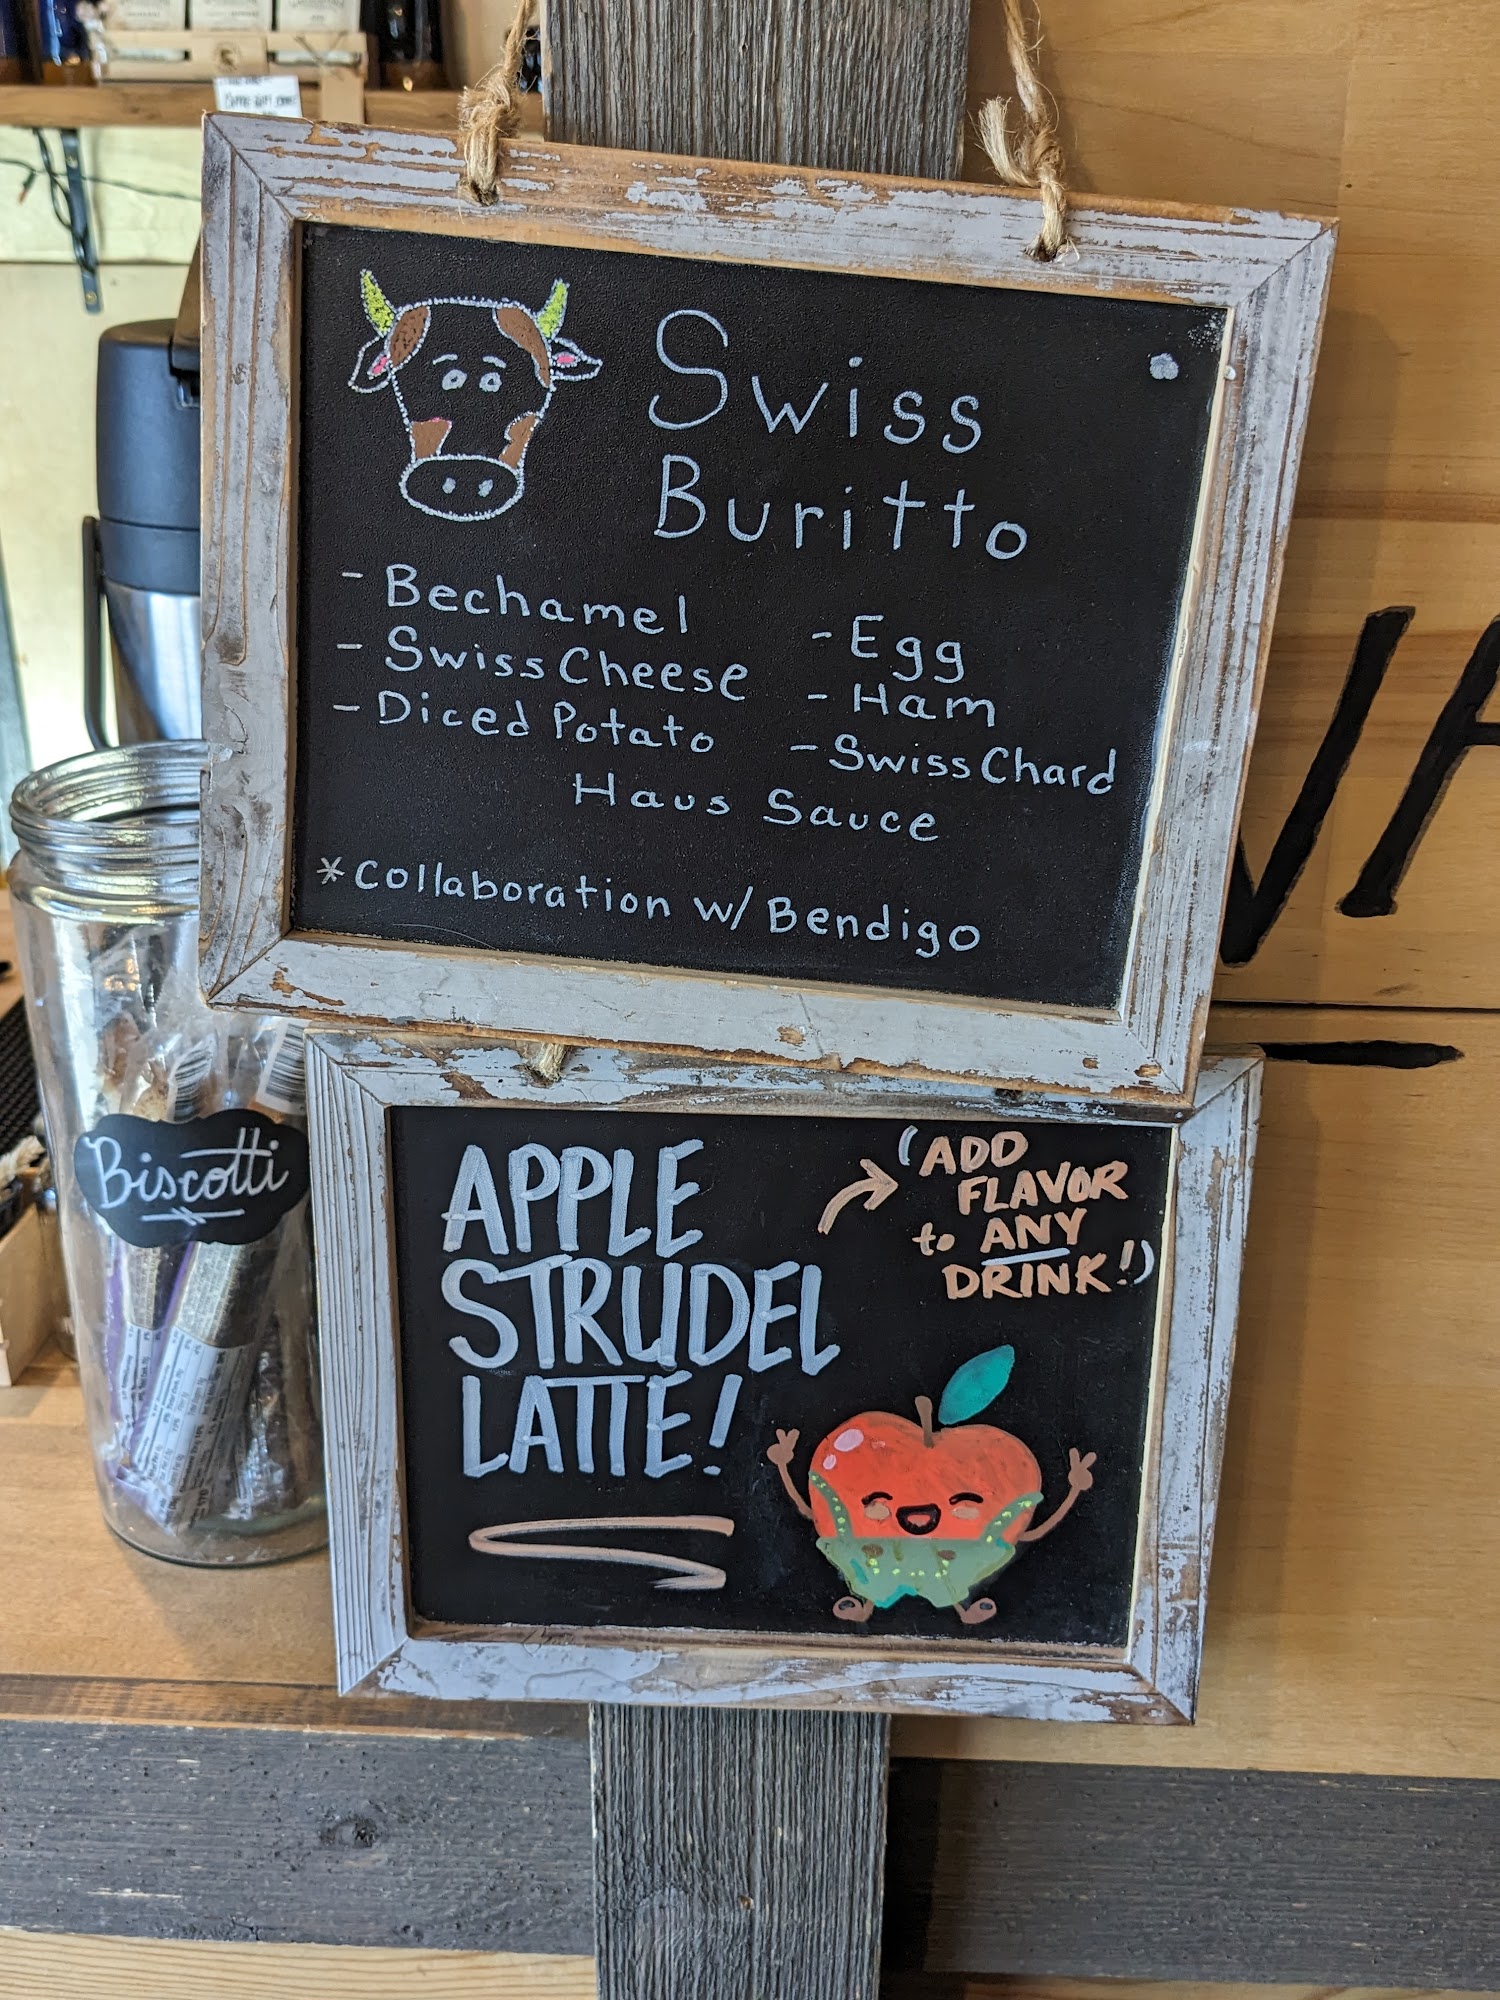 Swiss
Buritto
- Bechamel
- Swiss Cheese
- Diced Potato
- Egg
- Ham
- Swiss Chard
Haus Sauce
*Collaboration w/ Bendigo
Biscotti
APPLE
STRUDEL
LATTE!
(ADD
FLAVOR
to ANY
DRINK!)